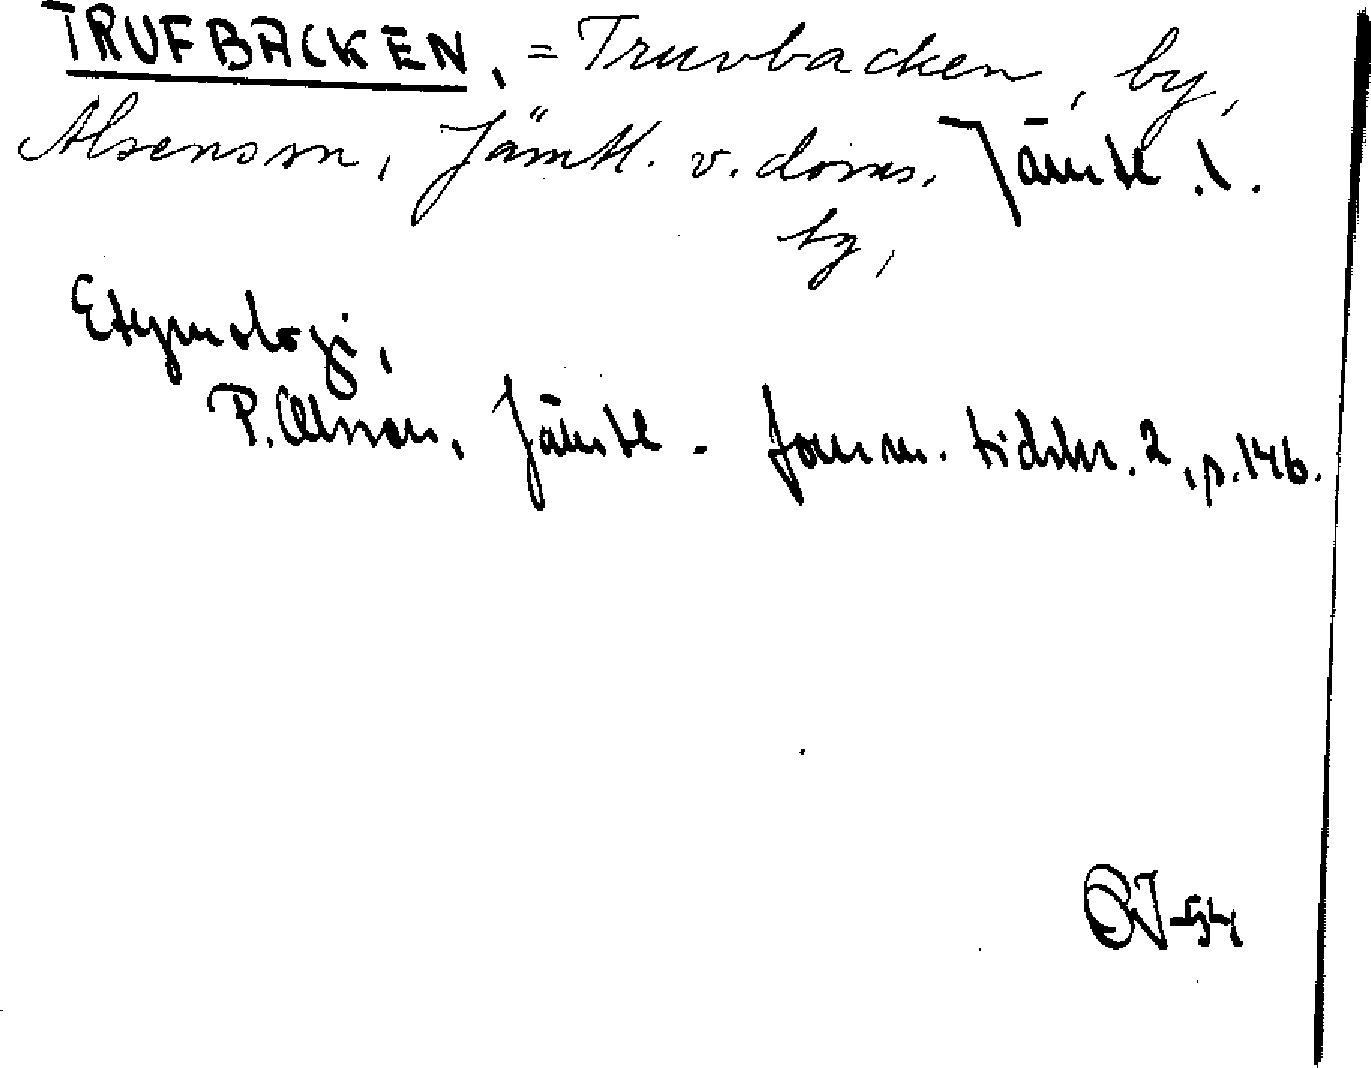 TRUFBACKEN, = Truvbacken, by,
Alsens sn, Jämtl. v. doms, Jämtl. l.
by,
Etymologi,
P. Olsson, Jämtl. fornm. tidskr. 2, p. 146.
-54